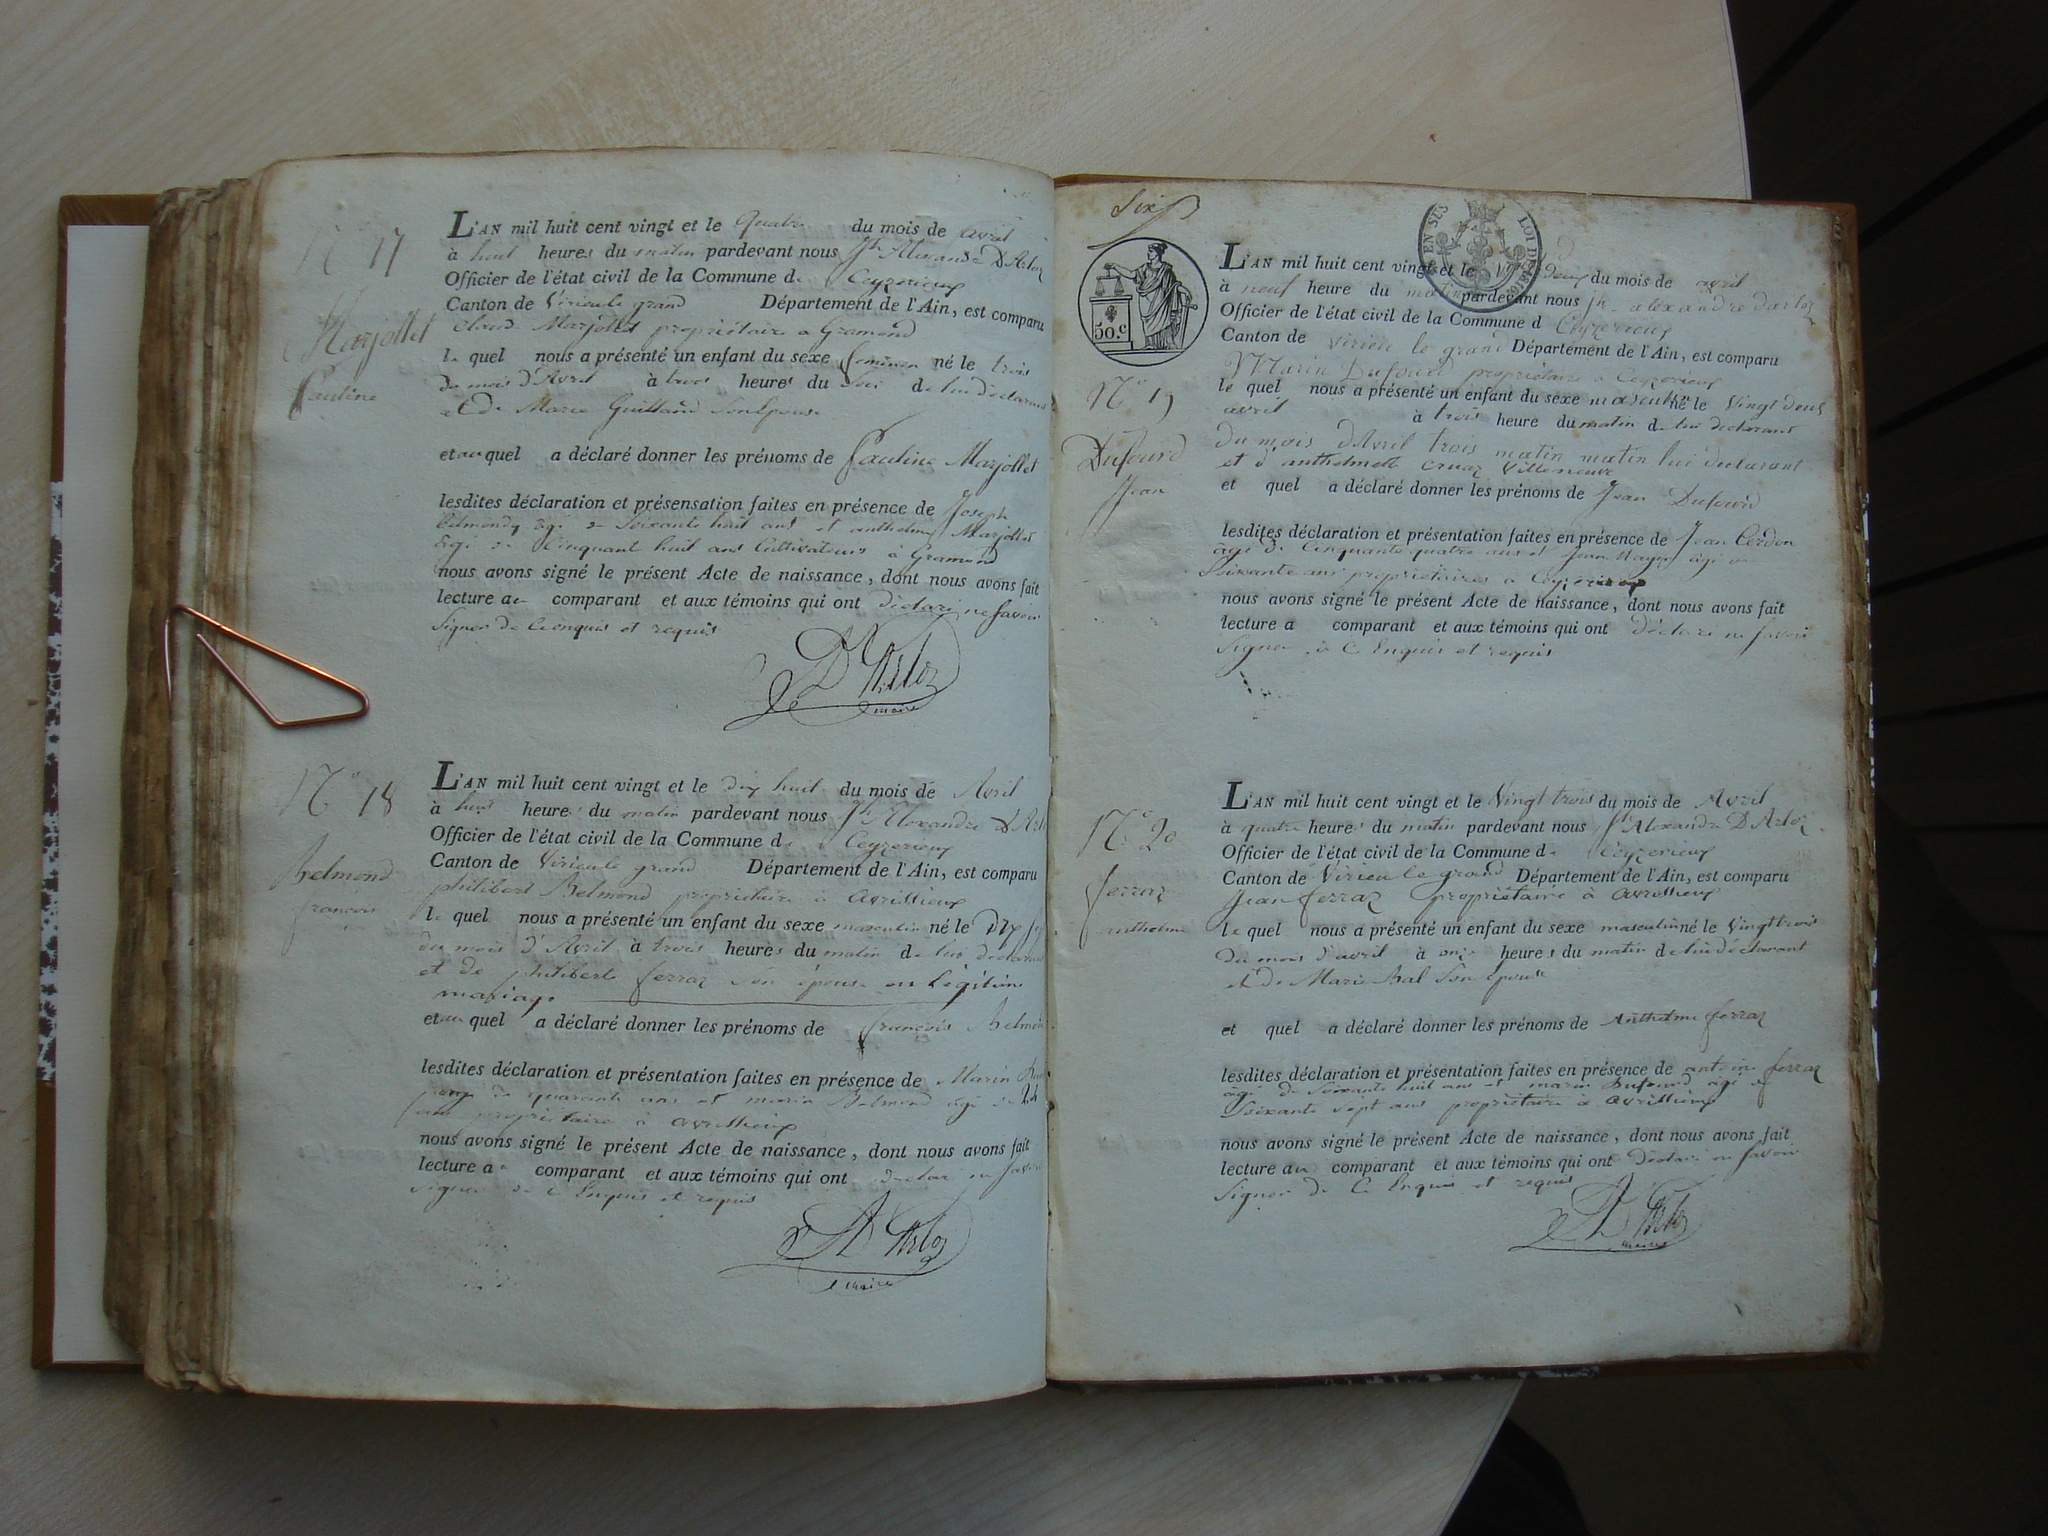 N° 17
Marjollet
Pauline
L'AN mil huit cent vingt et le quatre du mois de avril
à huit heures du matin pardevant nous Jh Alexandre D'Arloz
Officier de l'état civil de la Commune de Ceyzerieux
Canton de Virieu le grand Département de l'Ain, est comparu
Claude Marjollet propriétaire a Gramond
le quel nous a présenté un enfant du sexe feminin né le trois
du mois d'Avril à trois heures du soir de lui déclarant
et de Marie Guilland son epouse
et au quel a déclaré donner les prénoms de Pauline Marjollet
lesdites déclaration et présensation faites en présence de Joseph
Belmondy âgé de soixante huit ans et anthelme Marjollet
âgé de cinquant huit ans Cultivateurs à Gramond
nous avons signé le présent Acte de naissance, dont nous avons fait
lecture au comparant et aux témoins qui ont déclaré ne savoir
signer de ce enquis et requis
D'Arloz
maire
N° 18
Belmond
françois
L'AN mil huit cent vingt et le dix huit du mois de Avril
à huit heures du matin pardevant nous Jh Alexandre D'Arl
Officier de l'état civil de la Commune de Ceyzerieux
Canton de Virieu le grand Département de l'Ain, est comparu
philibert Belmond propriétaire à avrissieux
le quel nous a présenté un enfant du sexe masculin né le Dix
du mois d'Avril à trois heures du matin de lui déclarant
et de philiberte ferraz son épouse en Légitime
mariage
et au quel a déclaré donner les prénoms de françois Belmon
lesdites déclaration et présentation faites en présence de Marin
de quarante ans et marin Belmond âgé de
ans propriétaire à avrissieux
nous avons signé le présent Acte de naissance, dont nous avons fait
lecture au comparant et aux témoins qui ont déclaré ne savoir
signer de ce Enquis et requis
D'Arloz
maire
Six
EN SUS
LOI DE 1816
50.c
N° 19
Dufourd
Jean
L'AN mil huit cent vingt et le deux du mois de avril
à neuf heure du matin pardevant nous jh alexandre darloz
Officier de l'état civil de la Commune d Ceyzerieux
Canton de virieu le grand Département de l'Ain, est comparu
Marin Dufourd propriétaire a Ceyzerieux
le quel nous a présenté un enfant du sexe masculin né le Vingt deux
avril à trois heure du matin de lui declarant
du mois d'Avril trois matin matin lui declarant
et d'anthelmette Cruaz Villeneuve
et quel a déclaré donner les prénoms de Jean Dufourd
lesdites déclaration et présentation faites en présence de Jean Cerdon
âgé de Cinquante quatre ans et Jean âgé de
Soixante ans propriétaires a Ceyzerieux
nous avons signé le présent Acte de naissance, dont nous avons fait
lecture a comparant et aux témoins qui ont déclaré ne savoir
signer de ce Enquis et requis
N° 20
ferraz
anthelme
L'AN mil huit cent vingt et le Vingt trois du mois de Avril
à quatre heures du matin pardevant nous Jh Alexandre D'Arloz
Officier de l'état civil de la Commune de Ceyzerieux
Canton de Virieu le grand Département de l'Ain, est comparu
Jean ferraz propriétaire à avrissieux
le quel nous a présenté un enfant du sexe masculin né le Vingt trois
du mois d'avril à onze heures du matin de lui déclarant
et de Marie Bal son épouse
et quel a déclaré donner les prénoms de Anthelme ferraz
lesdites déclaration et présentation faites en présence de antoine ferraz
âgé de soixante huit ans et marin Dufourd âgé de
Soixante sept ans propriétaire à avrissieux
nous avons signé le présent Acte de naissance, dont nous avons fait
lecture au comparant et aux témoins qui ont déclaré ne savoir
Signer de Ce Enquis et requis
D'Arloz
maire